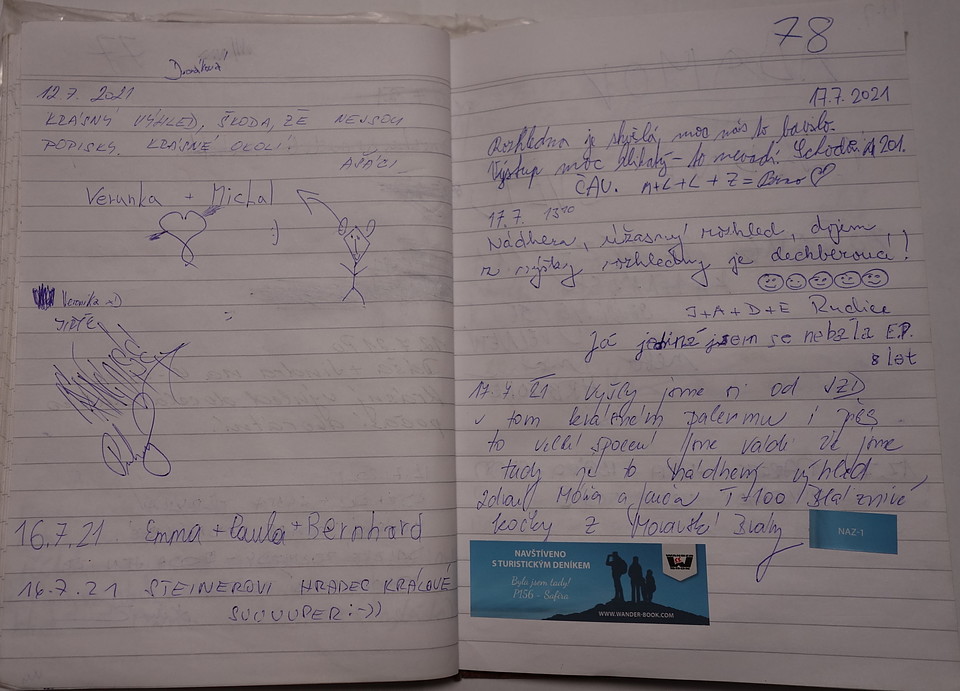 12.7. 2021
KRÁSNÝ VÝHLED, ŠKODA, ŽE NEJSOU
POPISKY. KRÁSNÉ OKOLÍ!
AŠÁCI
Verunka + Michal
:)
Veronika :D
JIŘÍ
16.7.21 Emma + Paula + Bernhard
16.7.21 STEINEROVI HRADEC KRÁLOVÉ
SUUUUPER :-))
78
17.7.2021
Rozhledna je skvělá, moc nás to bavilo.
Výstup moc klikatý - to nevadí. Schodů 201.
ČAU. A+L+L+Z = Brno ♡
17.7. 13¹⁰
Nádhera, úžasný rozhled, dojem
z výšky rozhledny je dechberoucí!
J+A+D+E Rudice
Já jediná jsem se nebála E.P.
8 let
17.7.21 Vyšly jsme si od JZD
v tom krásném palermu i přes
to velké spocení jsme rádi že jsme
tady je to nádherný výhled
T+100 Bláznivé
kočky z Moravské
NAZ-1
NAVŠTÍVENO
S TURISTICKÝM DENÍKEM
Byla jsem tady!
P156 - Safira
WWW.WANDER-BOOK.COM